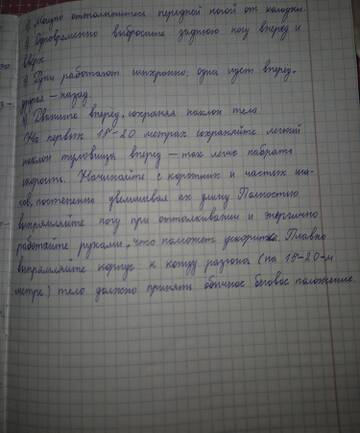 1) Мощно оттолкнитесь передней ногой от колодки.
2) Одновременно выбросите заднюю ногу вперед и
вверх
3) Руки работают синхронно: одна идет вперед,
другая – назад.
4) Двигайте вперед, сохраняя наклон тела
На первых 15-20 метрах сохраняйте легкий
наклон туловища вперед – так легче набрать
скорость. Начинайте с коротких и частых ша-
гов, постепенно увеличивая их длину. Полностью
выпрямляйте ногу при отталкивании и энергично
работайте руками, что поможет ускориться. Плавно
выпрямляйте корпус к концу разгона (на 15-20-м
метре) тело должно принять обычное беговое положение.